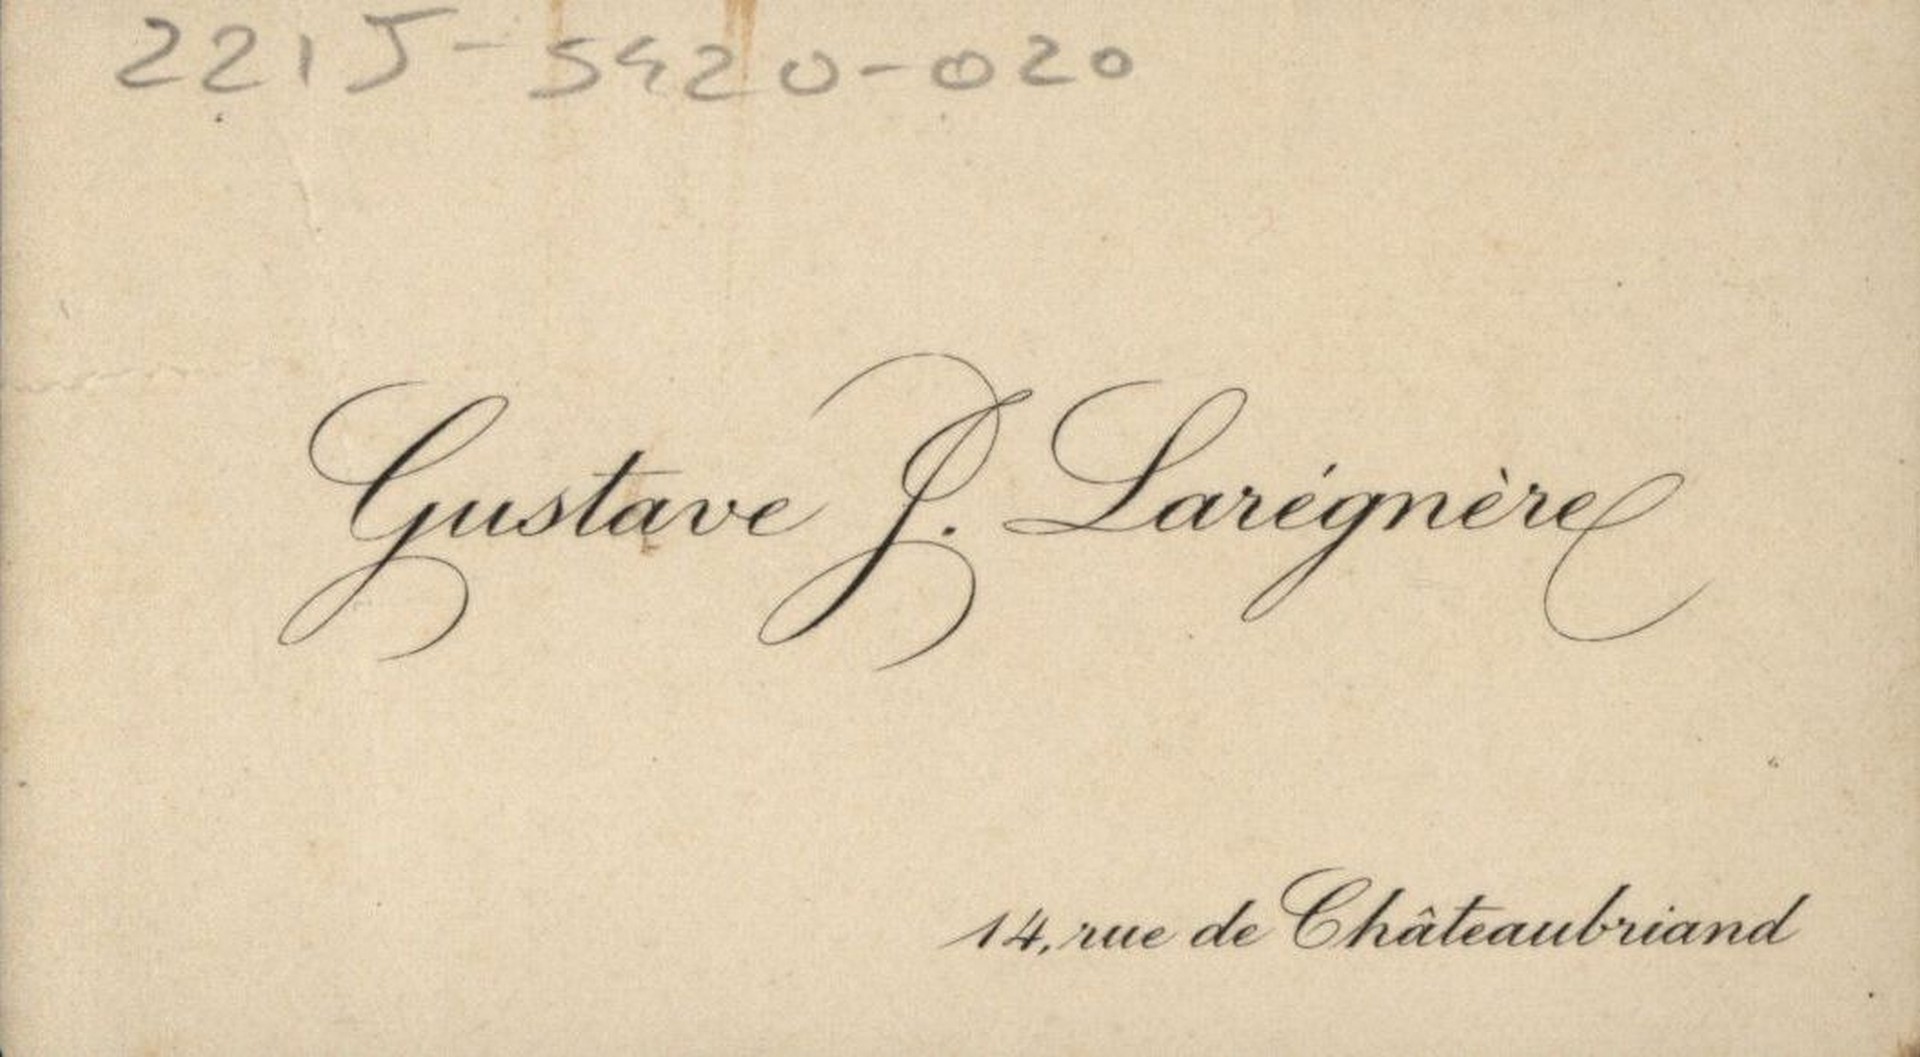 221J-5420-020
Gustave J. Larégnère
14, rue de Châteaubriand